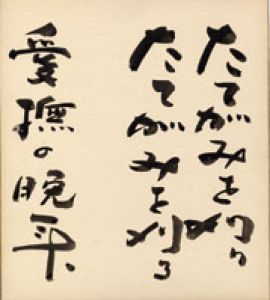 たてがみを刈り
たてがみを刈る
愛撫の晩年